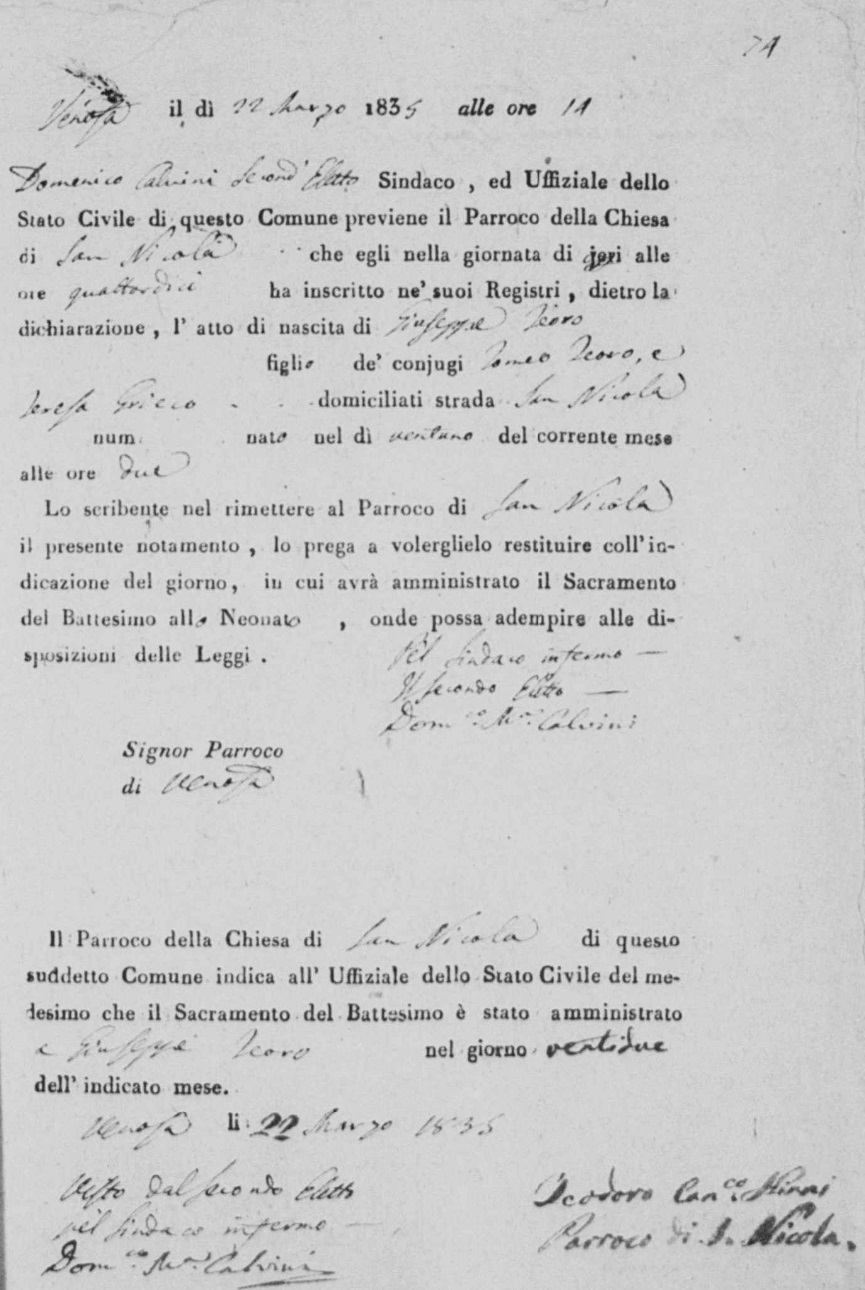 74
Venosa il dì 22 Marzo 1835 alle ore 14
Domenico Calvini Second' Eletto Sindaco , ed Uffiziale dello
Stato Civile di questo Comune previene il Parroco della Chiesa
di San Nicola che egli nella giornata di jeri alle
ore quattordici ha inscritto ne' suoi Registri , dietro la
dichiarazione , l' atto di nascita di Giuseppe Teoro
figlio de' conjugi Romeo Teoro, e
Teresa Grieco - domiciliati strada San Nicola
num. nato nel dì ventuno del corrente mese
alle ore due
Lo scribente nel rimettere al Parroco di San Nicola
il presente notamento , lo prega a volerglielo restituire coll' in-
dicazione del giorno, in cui avrà amministrato il Sacramento
del Battesimo allo Neonato , onde possa adempire alle di-
sposizioni delle Leggi .
Pel Sindaco infermo —
Il Secondo Eletto —
Dom.co M.a Calvini
Signor Parroco
di Venosa
Il Parroco della Chiesa di San Nicola di questo
suddetto Comune indica all' Uffiziale dello Stato Civile del me-
desimo che il Sacramento del Battesimo è stato amministrato
a Giuseppe Teoro nel giorno ventidue
dell' indicato mese.
Venosa li 22 Marzo 1835
Visto dal Secondo Eletto
pel Sindaco infermo —
Dom.co M.a Calvini
Teodoro Can.co
Parroco di S. Nicola.